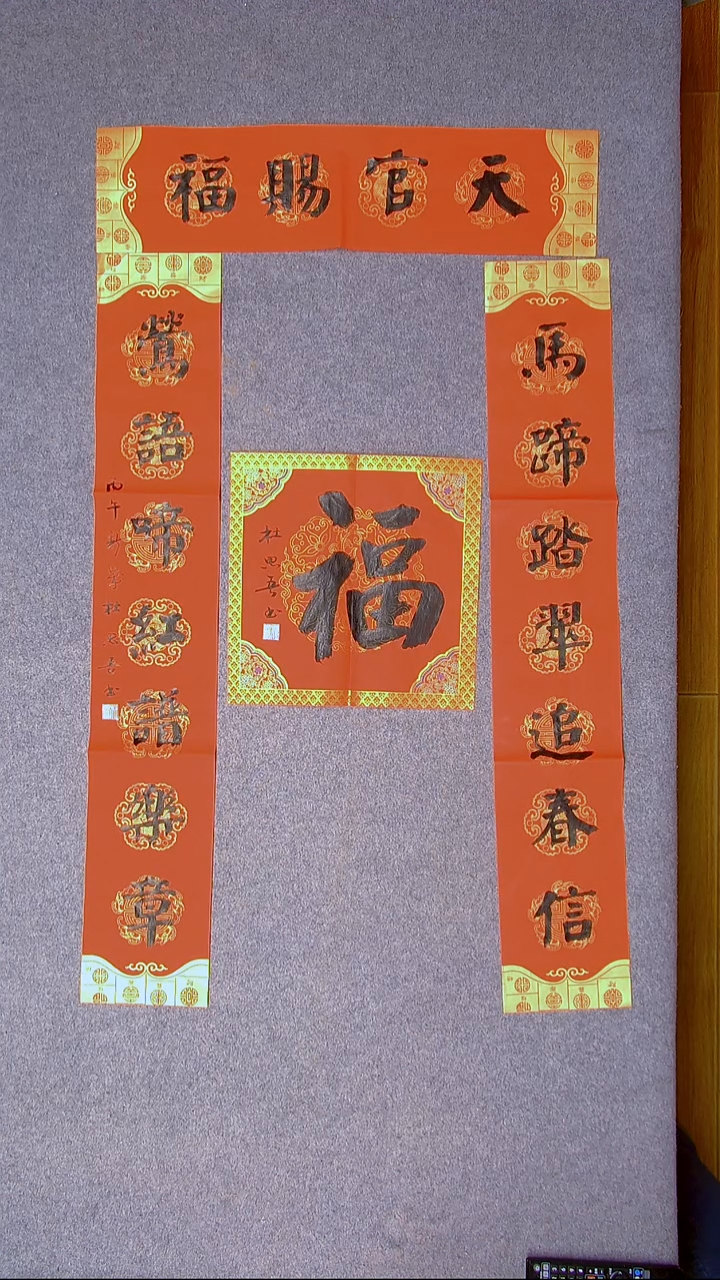 天官賜福
馬蹄踏翠追春信
鶯語啼紅譜樂章
丙午 杜思吾書
福
杜思吾書